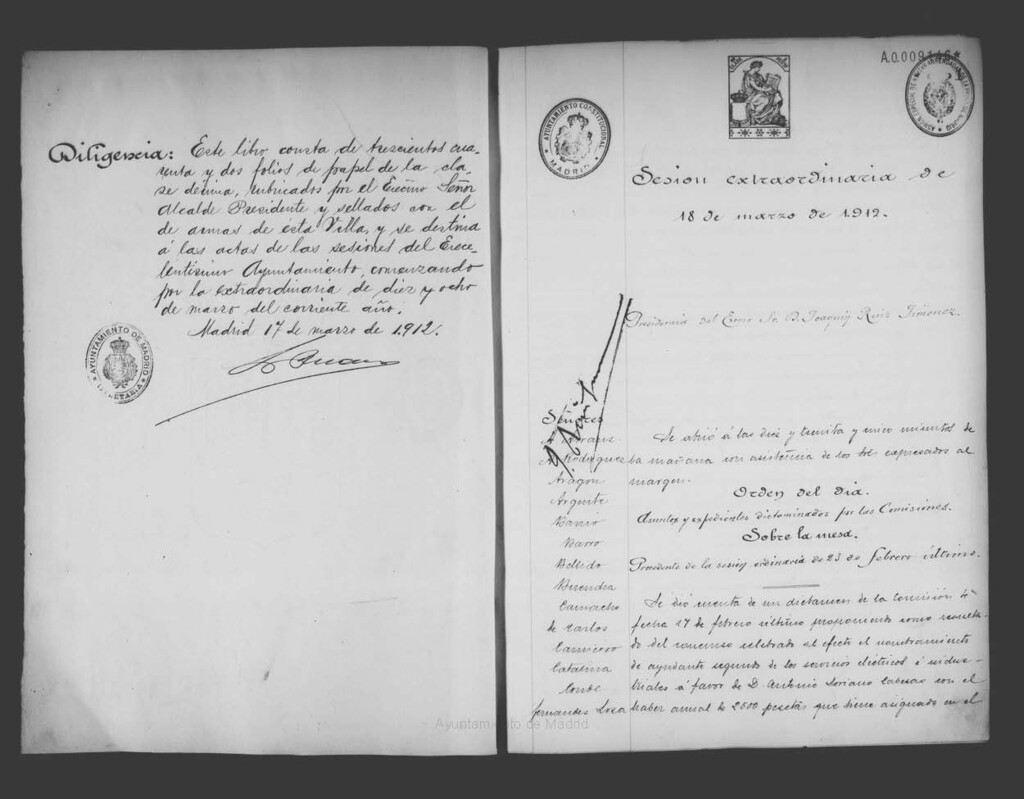 Diligencia: Este libro consta de trescientos cua-
renta y dos folios de papel de la cla-
se décima, rubricados por el Excmo Señor
Alcalde Presidente y sellados con el
de armas de esta Villa, y se destina
á las actas de las sesiones del Exce-
lentisimo Ayuntamiento, comenzando
por la extraordinaria de diez y ocho
de marzo del corriente año.
Madrid 17 de marzo de 1.912.
AYUNTAMIENTO DE MADRID
SECRETARIA
A.0.009,146*
AYUNTAMIENTO CONSTITUCIONAL
MADRID
Sesion extraordinaria de
18 de marzo de 1.912.
Presidencia del Excmo Sr. D. Joaquin Ruiz Jiménez.
Señores
Rodriguez
Aragon
Argente
Barrio
Barro
Bellido
Buendia
Camacho
de Carlos
Carnicero
Catalina
Conde
Fernandez Loza
Se abrió á las diez y treinta y cinco minutos de
la mañana con asistencia de los Sres expresados al
margen.
Orden del dia.
Asuntos y expedientes dictaminados por las Comisiones.
Sobre la mesa.
Procedente de la sesión ordinaria de 23 de febrero último.
Se dió cuenta de un dictamen de la Comisión 4ª
fecha 17 de febrero último proponiendo como resulta-
do del concurso celebrado al efecto el nombramiento
de ayudante segundo de los servicios eléctricos é indus-
triales á favor de D. Antonio Soriano con el
haber anual de 2500 pesetas que tiene asignado en el
Ayuntamiento de Madrid